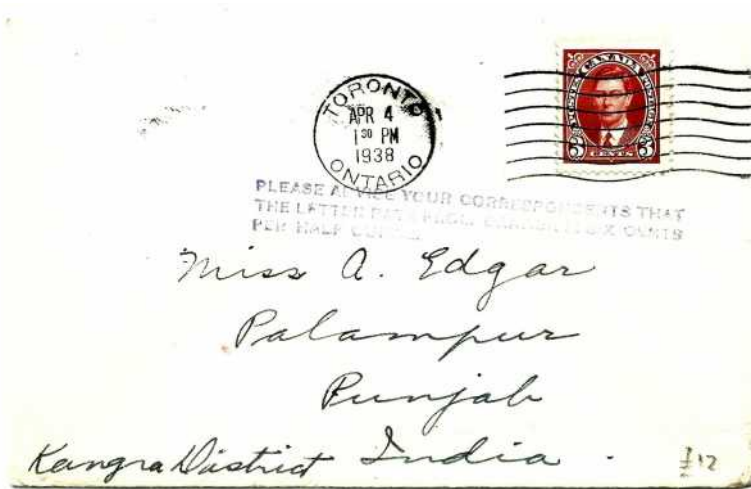 TORONTO
APR 4
1 30 PM
1938
ONTARIO
POSTES CANADA POSTAGE
3 CENTS 3
PLEASE ADVISE YOUR CORRESPONDENTS THAT
THE LETTER RATE FROM CANADA IS SIX CENTS
PER HALF OUNCE
Miss A. Edgar
Palampur
Punjab
Kangra District India .
£12